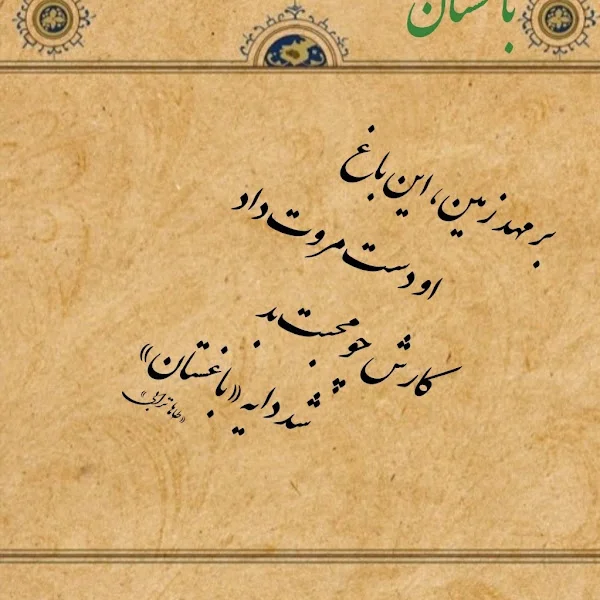 باغستان
بر مهد زمین، این باغ
او دست مروت داد
کارش چو محبت بد
شد دایه «باغستان»
«طاها ترابی»